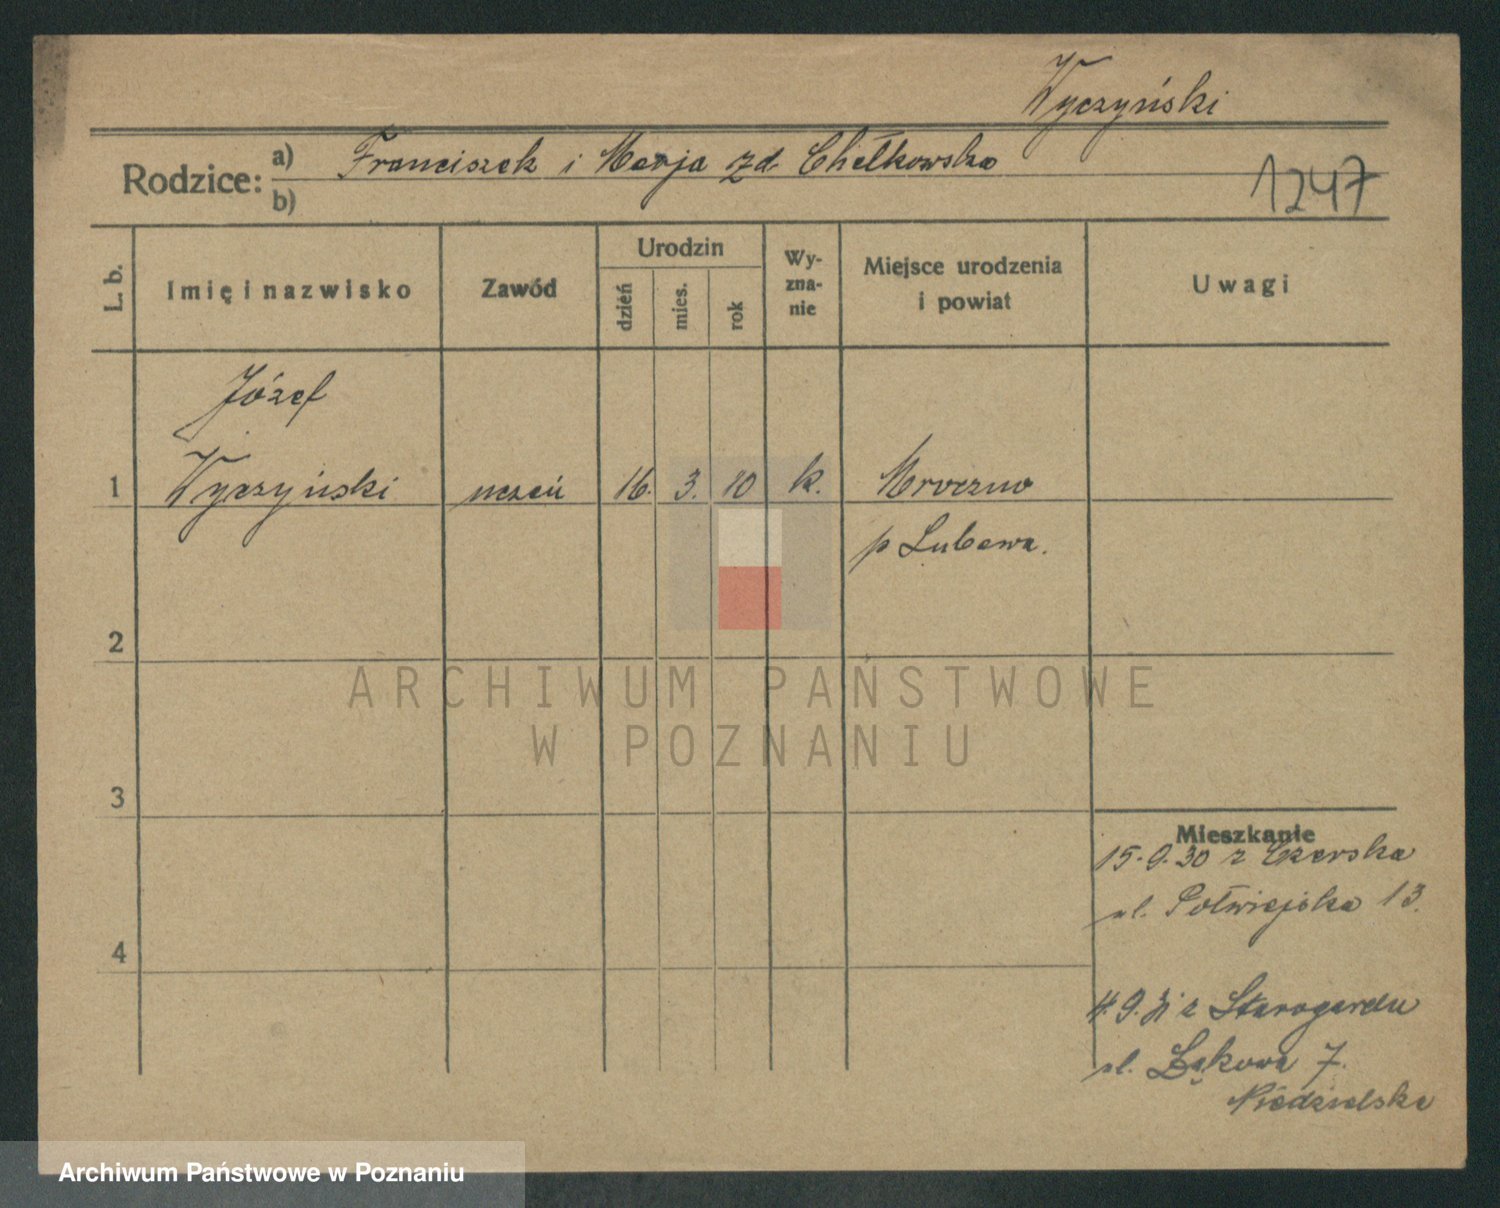 Wyczyński
Rodzice: a) Franciszek i Marja zd. Chełkowska
b)
1247
L. b.
Imię i nazwisko
Zawód
Urodzin
dzień
mies.
rok
Wy-
zna-
nie
Miejsce urodzenia
i powiat
Uwagi
Józef
1 Wyczyński uczeń 16. 3. 10 k. Mroczno
p Lubawa.
2
ARCHIWUM PAŃSTWOWE
W POZNANIU
3
Mieszkanie
15.9.30 z Czerska
ul. Półwiejska 13.
4
4.9.31 z Starogardu
ul. Łąkowa 7.
Niedzielska
Archiwum Państwowe w Poznaniu